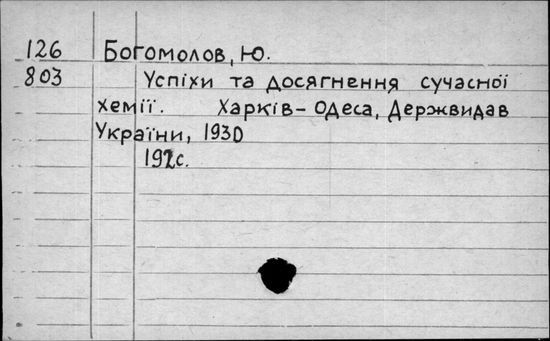 126 Богомолов, Ю.
803 Успіхи та досягнення сучасної
хемії. Харків-Одеса, Держвидав
України, 1930
192с.